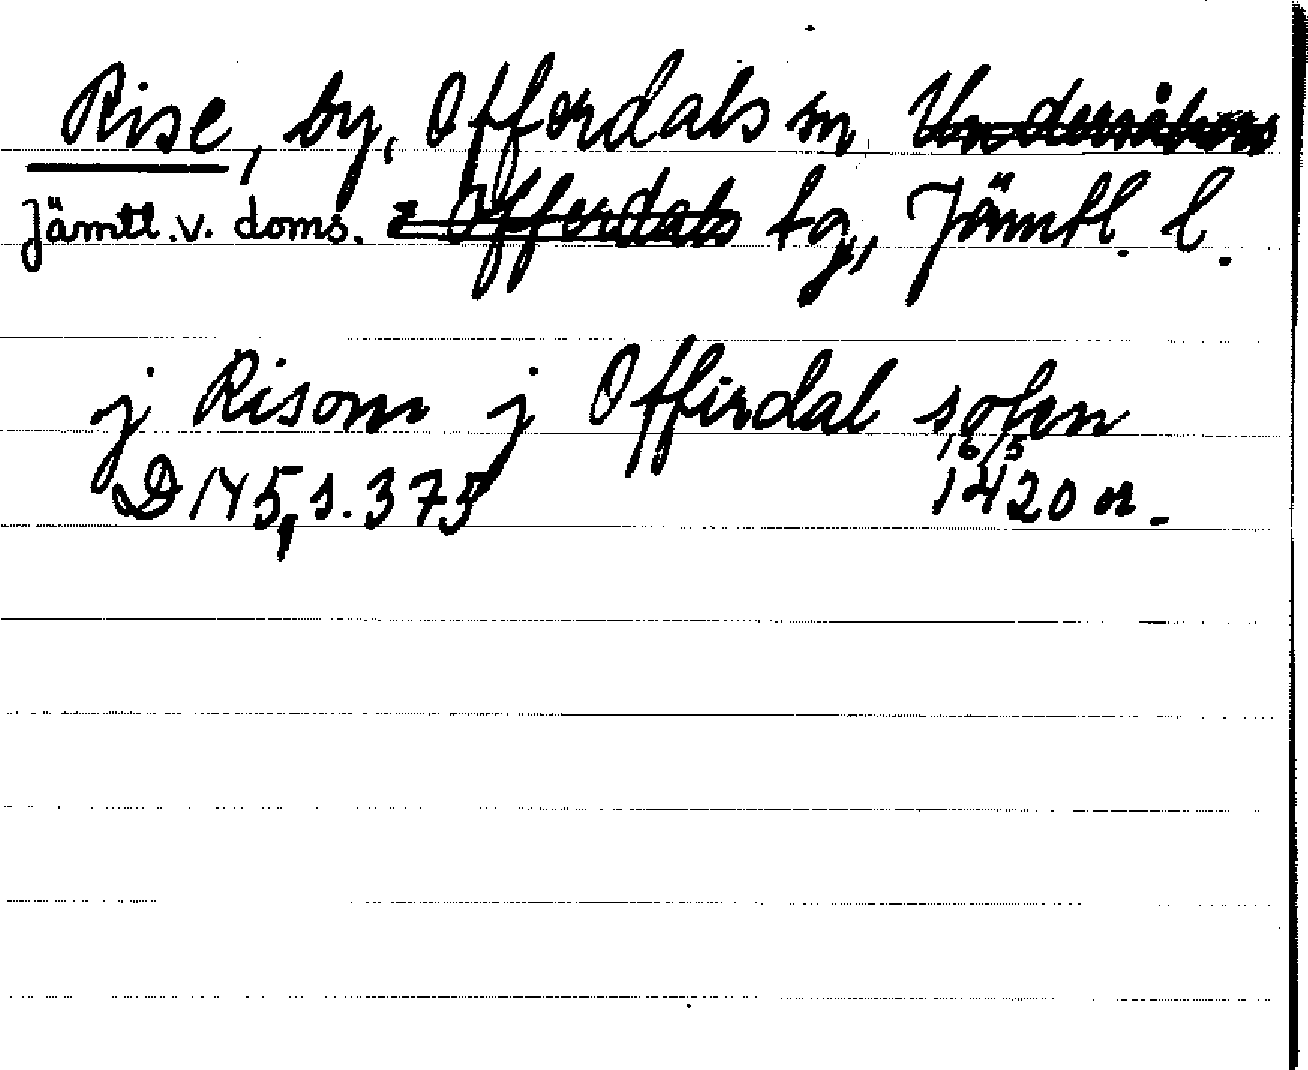 Rise, by, Offerdals sn, Undersåkers
Jämtl. v. doms. o Offerdals tg, Jämtl. l.
j Risom j Offirdal sokn
16/5
D IV 5, s. 375 1420 or.